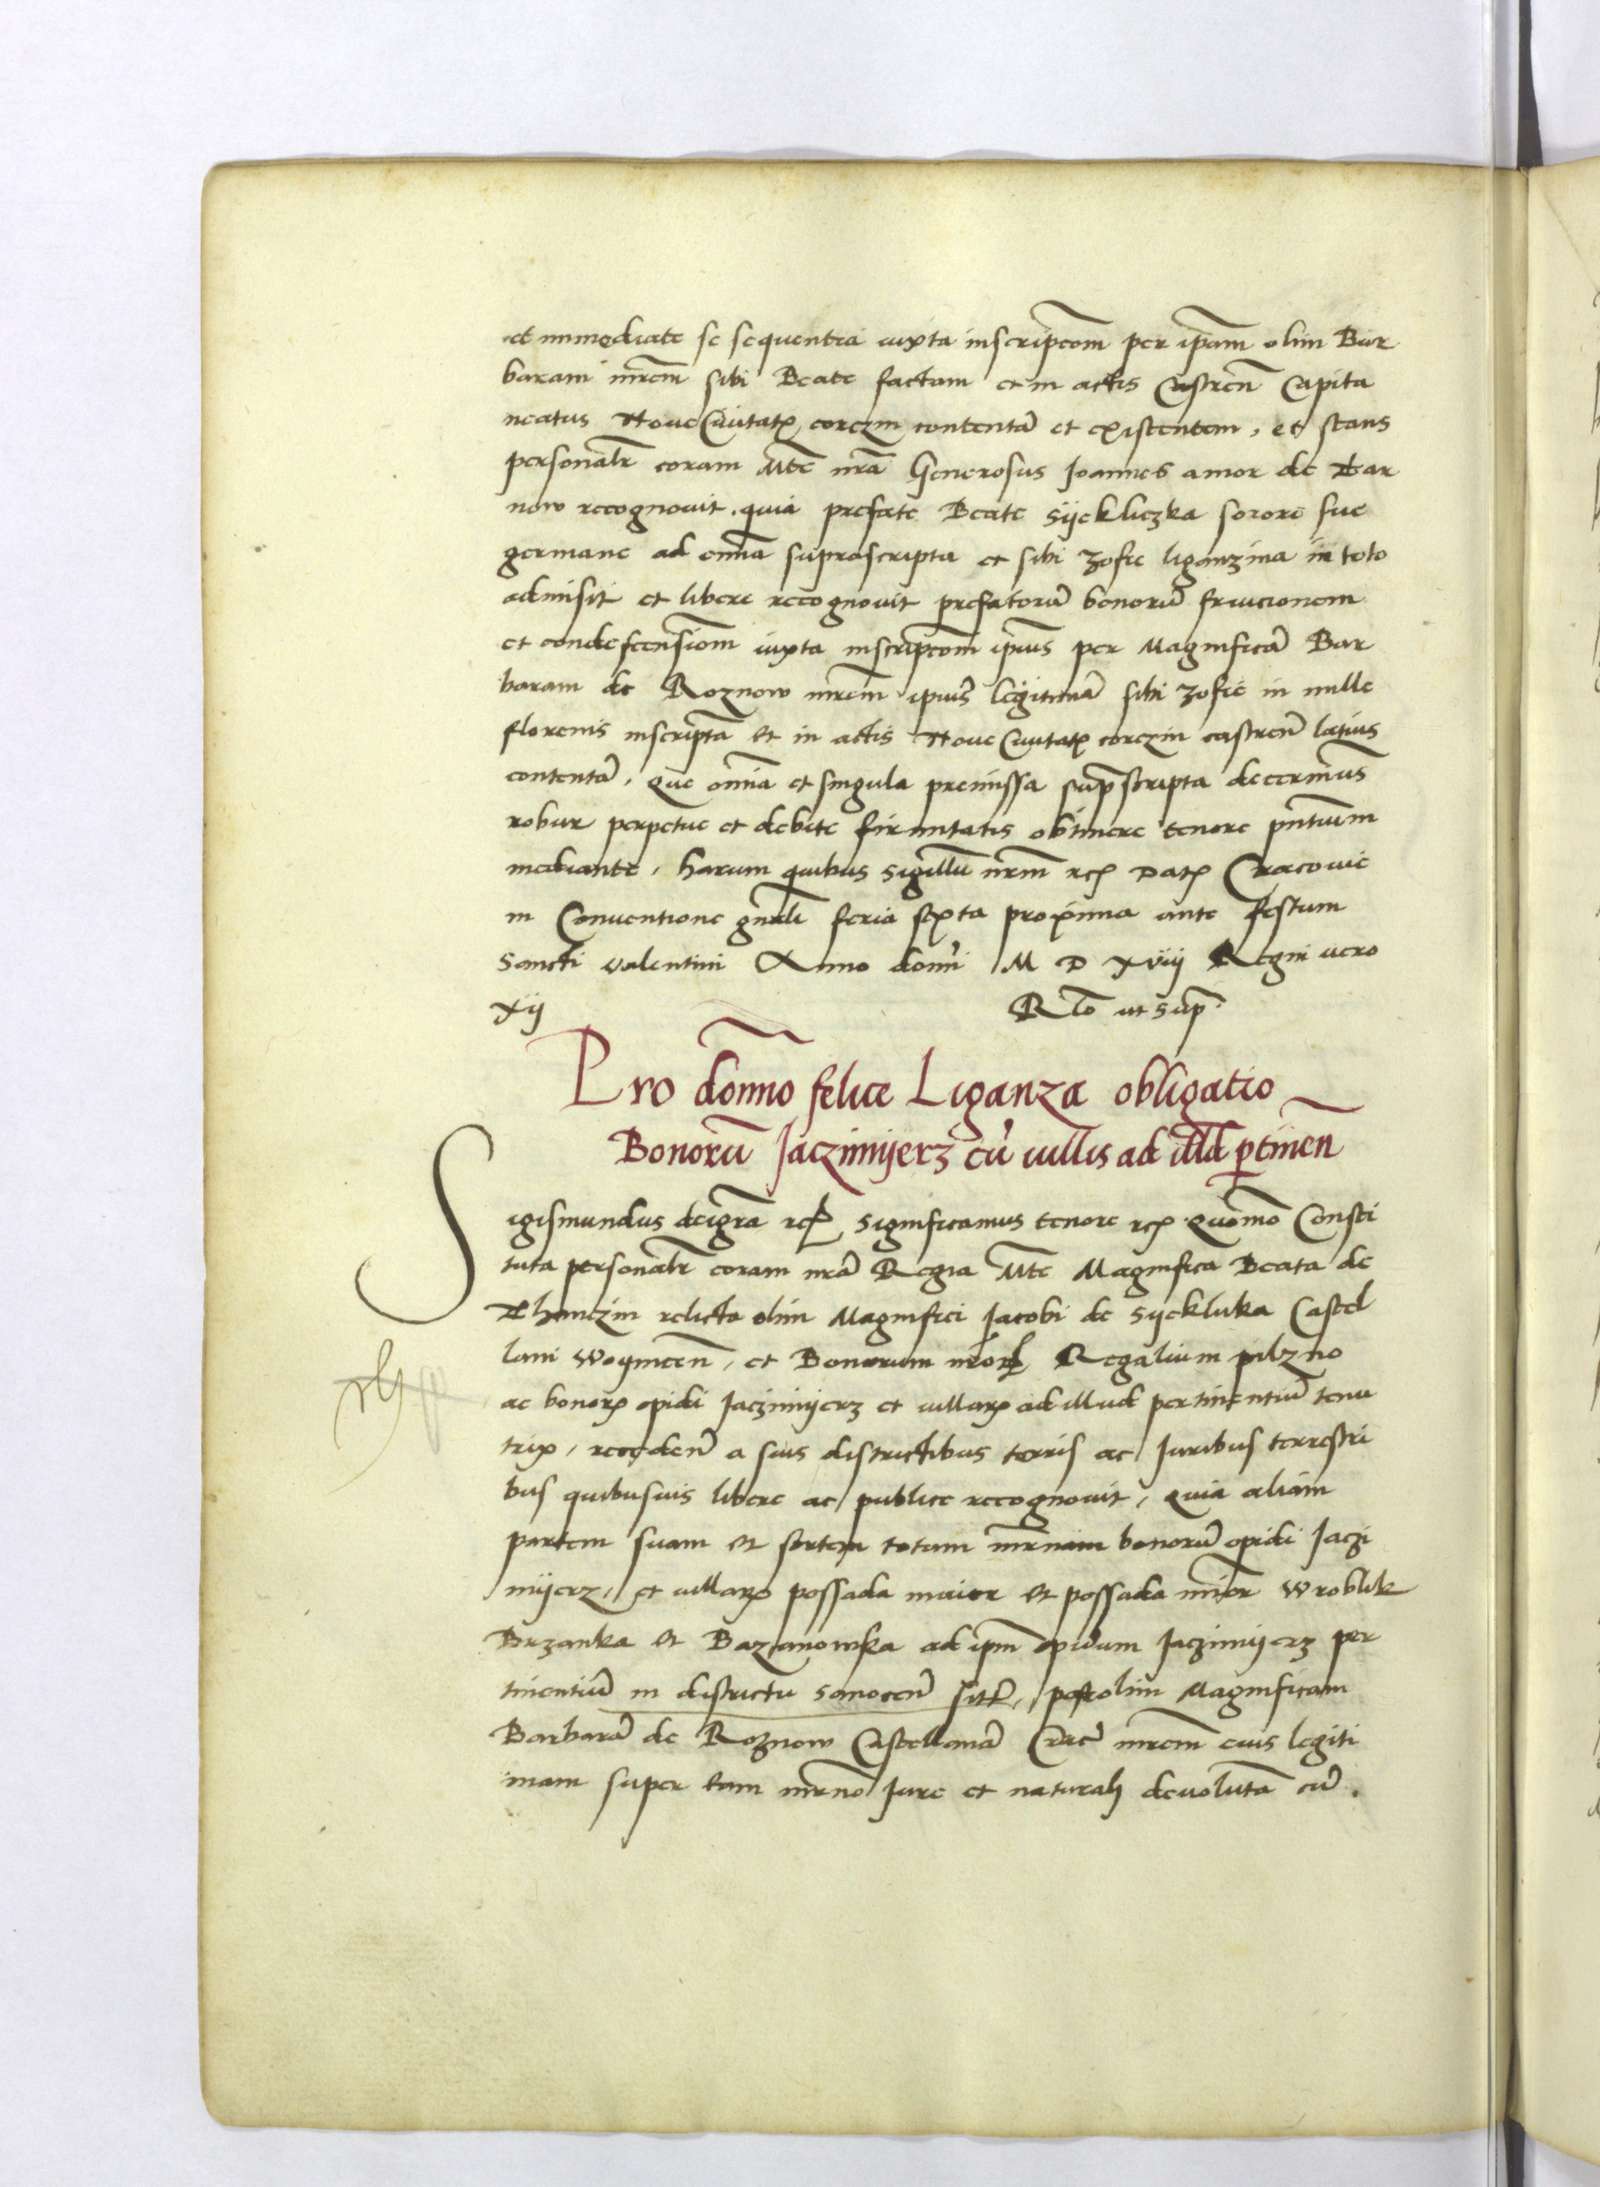 et immediate se sequentia iuxta inscripcōm per ip̄am olim Bar
baram mr̄em sibi Beate factam et in actis Castren̄ Capita
neatus Noue Ciuitatꝫ corczin contentā et existentem, et stans
personalr̄ coram Mte nr̄a Generosus Joannes amor de Tar
now recognouit. quia prefate Beate Syekliczka sorore sue
germane ad om̄ia suprascripta et sibi zofie liganzina in toto
admisit et libere recognouit prefatorū bonorū fruicionem
et condescensiom̄ iuxta inscripcōm ip̄ius per Magnificā Bar
baram de Roznow mr̄em ipiuš legitimā sibi zofie in mille
florenis inscriptā et in actis Noue Ciuitatꝫ corczin castren̄ latius
contentā, Que om̄ia et singula premissa sup̄scripta decernim̄us
robur perpetue et debite firmitatis obtinere tenore pn̄tium
mediante, harum quibus sigillū nr̄m rcꝫ Datꝫ Cracouie
in Conuentione gn̄ali feria sexta proxima ante festum
Sancti valentini Anno domī M D xviij Regni vero
xij Rlō ut sup̄.
Pro domn̄o felice Liganza obligatio
Bonorū Jaczimijerz cū uillis ad illd̄ ptinen̄
Sigismundus deigr̄a rcꝫ Significamus tenore rcꝫ quom̄o Consti
tuta personalr̄ coram nr̄a Regia Mte Magnifica Beata de
Thanczin relicta olim Magnifici Jacobi de Syekluka Castel
lani woynicen̄, et Bonorum nr̄orꝫ Regalium pilzno
ac bonorꝫ opidi Jaczimijerz et uillarꝫ ad illud pertinentiū tenu
trix, receden̄ a suis districtibus terris ac Juribus terrestri
bus quibusuis libere ac publice recognouit, Quia aliam
partem suam et sortem totam mr̄nam bonorū opidi Jaczi
mijerz, et uillarꝫ possada maior et possada mīor wroblik
Brzanka et Bazanowka ad ip̄m opidum Jaczimijerz per
tinentiū in districtu Sanocen̄ sitꝫ, post olim Magnificam
Barbarā de Roznow Castellanā Crac̄ mr̄em eius legiti
mam super eam mr̄no Jure et naturali deuolutā cū.